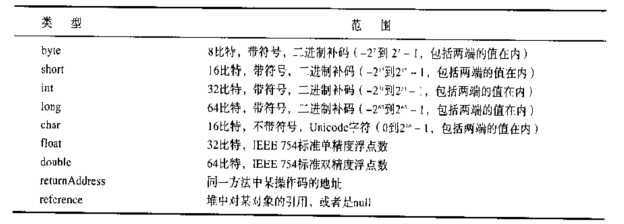 类 型 范 围
byte 8比特，带符号，二进制补码（-2⁷到 2⁷-1，包括两端的值在内）
short 16比特，带符号，二进制补码（-2¹⁵到2¹⁵-1，包括两端的值在内）
int 32比特，带符号，二进制补码（-2³¹到2³¹-1，包括两端的值在内）
long 64比特，带符号，二进制补码（-2⁶³到2⁶³-1，包括两端的值在内）
char 16比特，不带符号，Unicode字符（0到2¹⁶-1，包括两端的值在内）
float 32比特，IEEE 754标准单精度浮点数
double 64比特，IEEE 754标准双精度浮点数
returnAddress 同一方法中某操作码的地址
reference 堆中对某对象的引用，或者是null